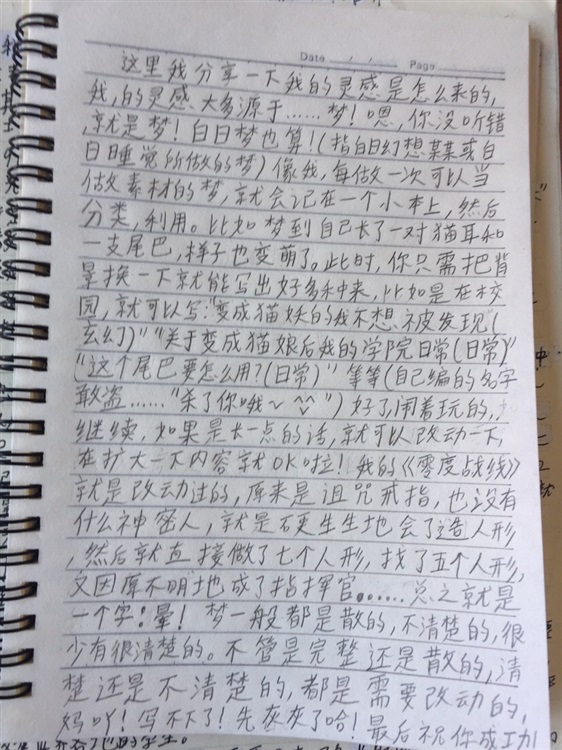 Date / / Page
这里我分享一下我的灵感是怎么来的,
我,的灵感大多源于……梦!嗯,你没听错
,就是梦!白日梦也算!(指白日幻想某或白
日睡觉所做的梦)像我,每做一次可以当
做素材的梦,就会记在一个小本上,然后
分类,利用。比如梦到自己长了一对猫耳和
一支尾巴,样子也变萌了。此时,你只需把背
景换一下就能写出好多种来,比如是在校
园,就可以写:"变成猫妖的我不想被发现(
玄幻)""关于变成猫娘后我的学院日常(日常)"
"这个尾巴要怎么用?(日常)"等等(自己编的名字
敢盗……"杀了你哦~^^")好了,闹着玩的,
继续,如果是长一点的话,就可以改动一下,
在扩大一下内容就OK啦!我的《零度战线》
就是改动过的,原来是诅咒戒指,也没有
什么神密人,就是硬生生地会了造人形
,然后就直接做了七个人形,找了五个人形,
又因原不明地成了指挥官……总之就是
一个字:晕!梦一般都是散的,不清楚的,很
少有很清楚的。不管是完整还是散的,清
楚还是不清楚的,都是需要改动的,
妈吖!写不下了!先灰灰了哈!最后祝你成功